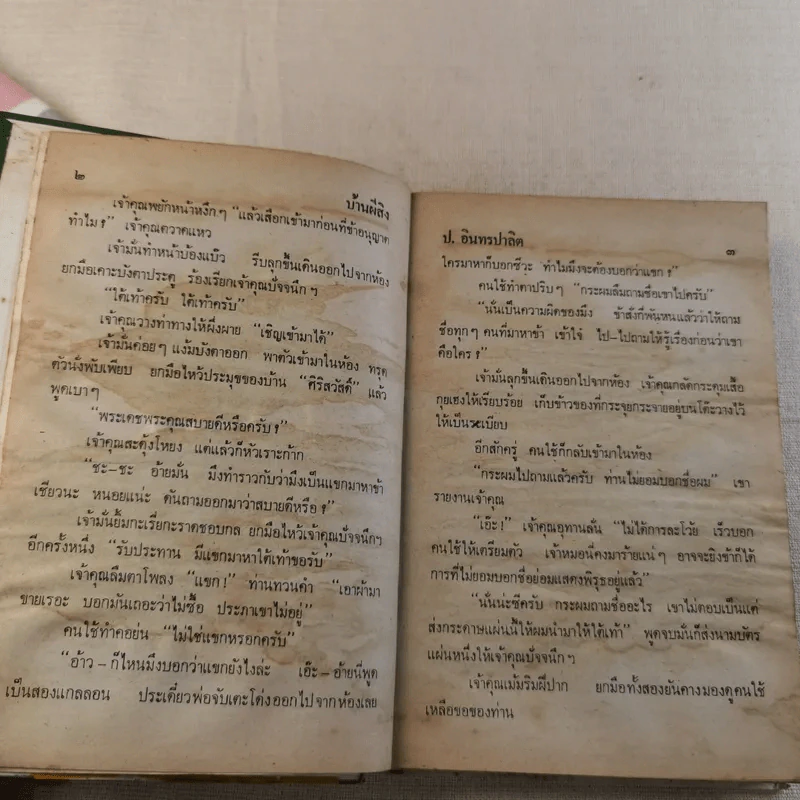 ๒
บ้านผีสิง
เจ้าคุณพยักหน้าหงึกๆ "แล้วเสือกเข้ามาก่อนที่ข้าอนุญาต
ทำไม?" เจ้าคุณตวาดแหว
เจ้ามั่นทำหน้าบ้องแบ๊ว รีบลุกขึ้นเดินออกไปจากห้อง
ยกมือเคาะบังตาประตู ร้องเรียกเจ้าคุณปัจจนึกฯ
"ใต้เท้าครับ ใต้เท้าครับ"
เจ้าคุณวางท่าทางให้ผึ่งผาย "เชิญเข้ามาได้"
เจ้ามั่นค่อยๆ แง้มบังตาออก พาตัวเข้ามาในห้อง ทรุด
ตัวนั่งพับเพียบ ยกมือไหว้ประมุขของบ้าน "ศิริสวัสดิ์" แล้ว
พูดเบาๆ
"พระเดชพระคุณสบายดีหรือครับ?"
เจ้าคุณสะดุ้งโหยง แต่แล้วก็หัวเราะก๊าก
"ชะ-ชะ อ้ายมั่น มึงทำราวกับว่ามึงเป็นแขกมาหาข้า
เชียวนะ หนอยแน่ะ ดันถามออกมาว่าสบายดีหรือ?"
เจ้ามั่นยิ้มกะเรี่ยกะราดชอบกล ยกมือไหว้เจ้าคุณปัจจนึกฯ
อีกครั้งหนึ่ง "รับประทาน มีแขกมาหาใต้เท้าขอรับ"
เจ้าคุณลืมตาโพลง "แขก!" ท่านทวนคำ "เอาผ้ามา
ขายเรอะ บอกมันเถอะว่าไม่ซื้อ ประภาเขาไม่อยู่"
คนใช้ทำคอย่น "ไม่ใช่แขกหรอกครับ"
"อ้าว-ก็ไหนมึงบอกว่าแขกยังไงล่ะ เอ๊ะ-อ้ายนี่พูด
เป็นสองแกลลอน ประเดี๋ยวพ่อจับเตะโด่งออกไปจากห้องเลย
ป. อินทรปาลิต
๓
ใครมาหาก็บอกซีวะ ทำไมมึงจะต้องบอกว่าแขก?"
คนใช้ทำตาปริบๆ "กระผมลืมถามชื่อเขาไปครับ"
"นั่นเป็นความผิดของมึง ข้าสั่งกี่พันหนแล้วว่าให้ถาม
ชื่อทุกๆ คนที่มาหาข้า เข้าใจ๋ ไป-ไปถามให้รู้เรื่องก่อนว่าเขา
คือใคร?"
เจ้ามั่นลุกขึ้นเดินออกไปจากห้อง เจ้าคุณกลัดกระดุมเสื้อ
กุยเฮงให้เรียบร้อย เก็บข้าวของที่กระจุยกระจายอยู่บนโต๊ะวางไว้
ให้เป็นระเบียบ
อีกสักครู่ คนใช้ก็กลับเข้ามาในห้อง
"กระผมไปถามแล้วครับ ท่านไม่ยอมบอกชื่อผม" เขา
รายงานเจ้าคุณ
"เอ๊ะ!" เจ้าคุณอุทานลั่น "ไม่ได้การละโว้ย เร็วบอก
คนใช้ให้เตรียมตัว เจ้าหมอนี่คงมาร้ายแน่ๆ อาจจะยิงข้าก็ได้
การที่ไม่ยอมบอกชื่อย่อมแสดงพิรุธอยู่แล้ว"
"นั่นน่ะซีครับ กระผมถามชื่ออะไร เขาไม่ตอบเป็นแต่
ส่งกระดาษแผ่นนี้ให้ผมนำมาให้ใต้เท้า" พูดจบมั่นก็ส่งนามบัตร
แผ่นหนึ่งให้เจ้าคุณปัจจนึกฯ
เจ้าคุณเม้มริมฝีปาก ยกมือทั้งสองยันคางมองดูคนใช้
เหลือขอของท่าน